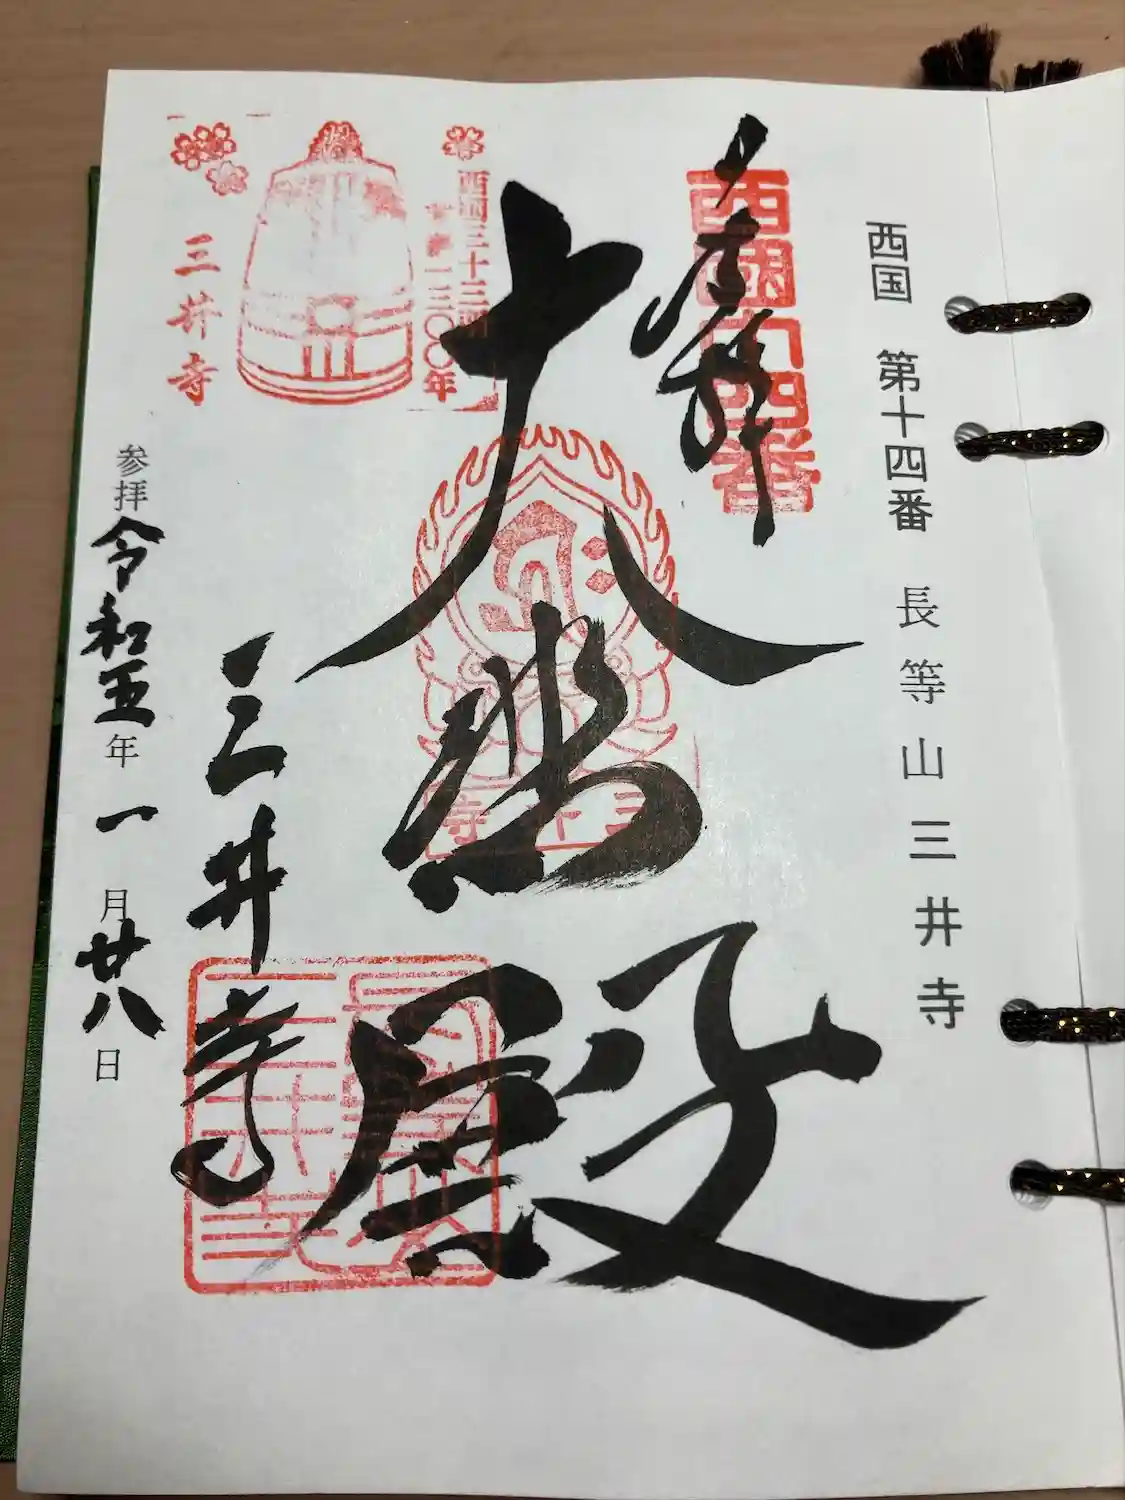 西国 第十四番 長等山三井寺
奉拝
西國十四番
大悲殿
三井寺
西国三十三所
一三〇〇年
三井寺
三井寺
参拝令和五年一月廿八日